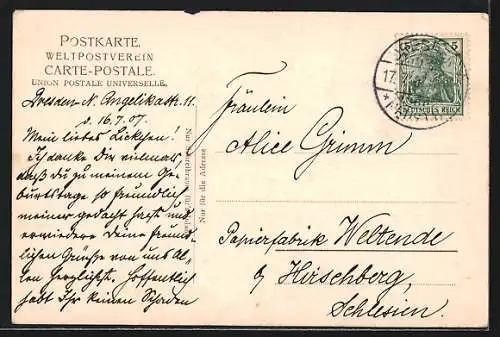 POSTKARTE.
WELTPOSTVEREIN
CARTE-POSTALE.
UNION POSTALE UNIVERSELLE.
Dresden-N. Angelikastr. 11.
d. 16.7.07.
Mein liebes Lickchen!
Ich danke Dir vielmals,
daß du zu meinem Ge-
burtstage so freundlich
meiner gedacht hast und
erwiedere Deine freund-
lichen Grüße von uns Al-
len herzlichst. Hoffentlich
habt Ihr keinen Schaden
Nur für die Adresse
5
DEUTSCHES REICH
17.
Fräulein
Alice Grimm
Papierfabrik Weltende
b/ Hirschberg,
Schlesien.